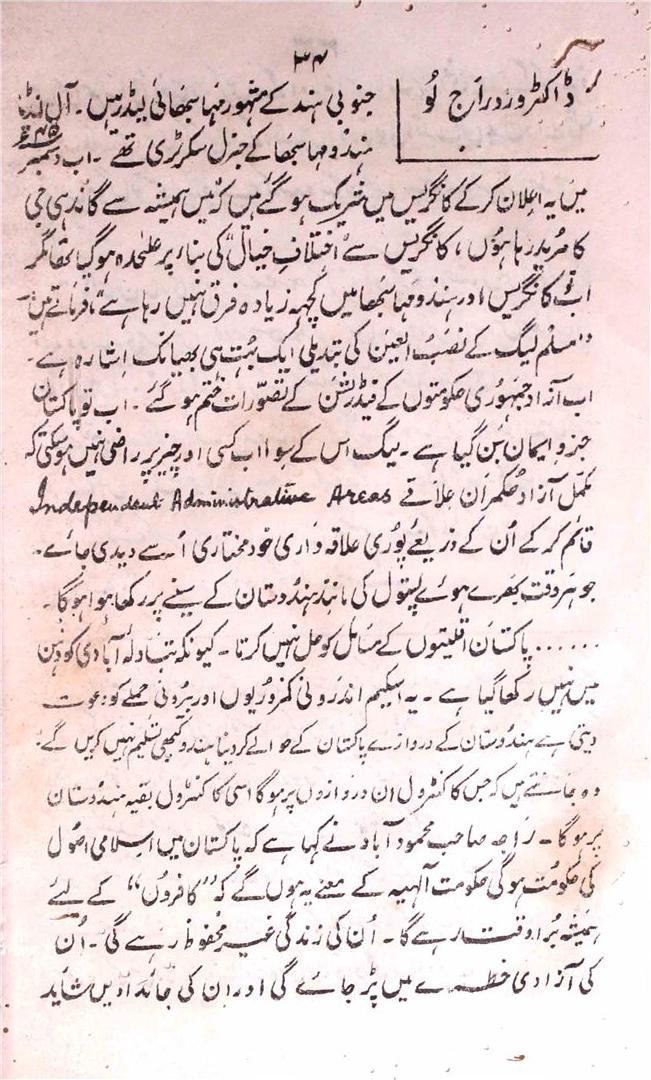 ۳۴
ڈاکٹر وردراج لُو
جنوبی ہند کے مشہور مہا سبھائی لیڈر ہیں ۔ آل انڈیا
ہندو مہا سبھا کے جنرل سکرٹری تھے ۔ اب دسمبر ۴۵ء
میں یہ اعلان کر کے کانگریس میں شریک ہو گئے ہیں کہ میں ہمیشہ سے گاندھی جی
کا مرید رہا ہوُں ، کانگریس سے "اختلافِ خیال" کی بناء پر علیٰحدہ ہو گیا تھا مگر
اب تو کانگریس اور ہندو مہا سبھا میں کچھ زیادہ فرق نہیں رہا ہے"، فرماتے ہیں
"مسلم لیگ کے نصبُ العین کی تبدیلی ایک بہُت ہی بھیانک اشارہ ہے ۔
اب آزاد جمہوُری حکومتوں کے فیڈرشن کے تصوّرات ختم ہو گئے ۔ اب تو پاکستان
جزوِ ایمان بن گیا ہے ۔ لیگ اس کے سوا اب کسی اور چیز پر راضی نہیں ہو سکتی کہ
مکمّل آزاد حکمران علاقے Independent Administrative Areas
قائم کر کے اُن کے ذریعے پوُری علاقہ واری خود مختاری اُسے دیدی جائے ۔
جو ہر وقت بھرے ہوئے پستول کی مانند ہندوُستان کے سینے پر رکھا ہوا ہوگا ۔
...... پاکستان اقلیتوں کے مسائل کو حل نہیں کرتا ۔ کیونکہ تبادلۂ آبادی کو ذہن
میں نہیں رکھا گیا ہے ۔ یہ اسکیم اندرونی کمزوریوں اور بیرونی حملے کو دعوت
دیتی ہے ہندوُستان کے دروازے پاکستان کے حوالے کر دینا ہندو کبھی تسلیم نہیں کریں گے ۔
وہ جانتے ہیں کہ جس کا کنٹرول ان دروازوں پر ہوگا اسی کا کنٹرول بقیہ ہندوُستان
پر ہوگا ۔ راجہ صاحب محموُد آباد نے کہا ہے کہ پاکستان میں اسلامی اصوُل
کی حکومُت ہوگی حکومت آلہیہ کے معنے یہ ہوں گے کہ "کافروُں" کے لیے
ہمیشہ بُرا وقت رہے گا ۔ اُن کی زندگی غیر محفوُظ رہے گی ۔ اُن
کی آزادی خطرے میں پڑ جائے گی اور ان کی جائدادیں شاید